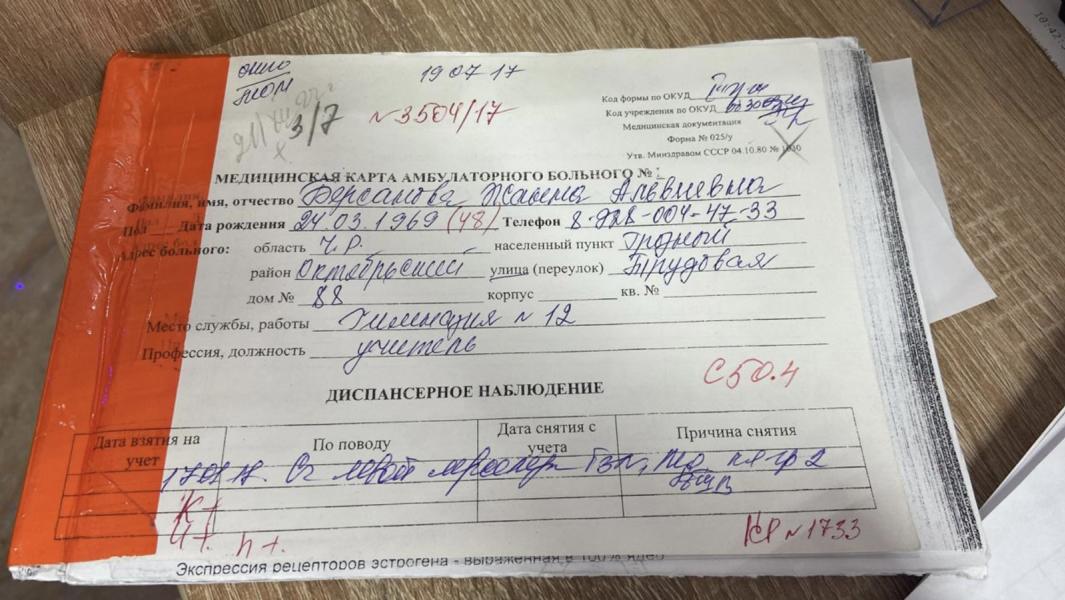 19 07 17
3/7
N 3504/17
Код формы по ОКУД
Код учреждения по ОКУД
Медицинская документация
Форма № 025/у
Утв. Минздравом СССР 04.10.80 № 1030
МЕДИЦИНСКАЯ КАРТА АМБУЛАТОРНОГО БОЛЬНОГО №
Фамилия, имя, отчество Берсанова Жанна
Пол Дата рождения 24.03.1969 (48) Телефон 8-928-004-47-33
Адрес больного: область Ч.Р. населенный пункт Грозный
район Октябрьский улица (переулок) Трудовая
дом № 88 корпус кв. №
Место службы, работы Гимназия N 12
Профессия, должность учитель
С50.4
ДИСПАНСЕРНОЕ НАБЛЮДЕНИЕ
Дата взятия на учет По поводу Дата снятия с учета Причина снятия
левой кл гр 2
К+
Ч+ h+.
КР N 1733
Экспрессия рецепторов эстрогена - выраженная в 100% ядер